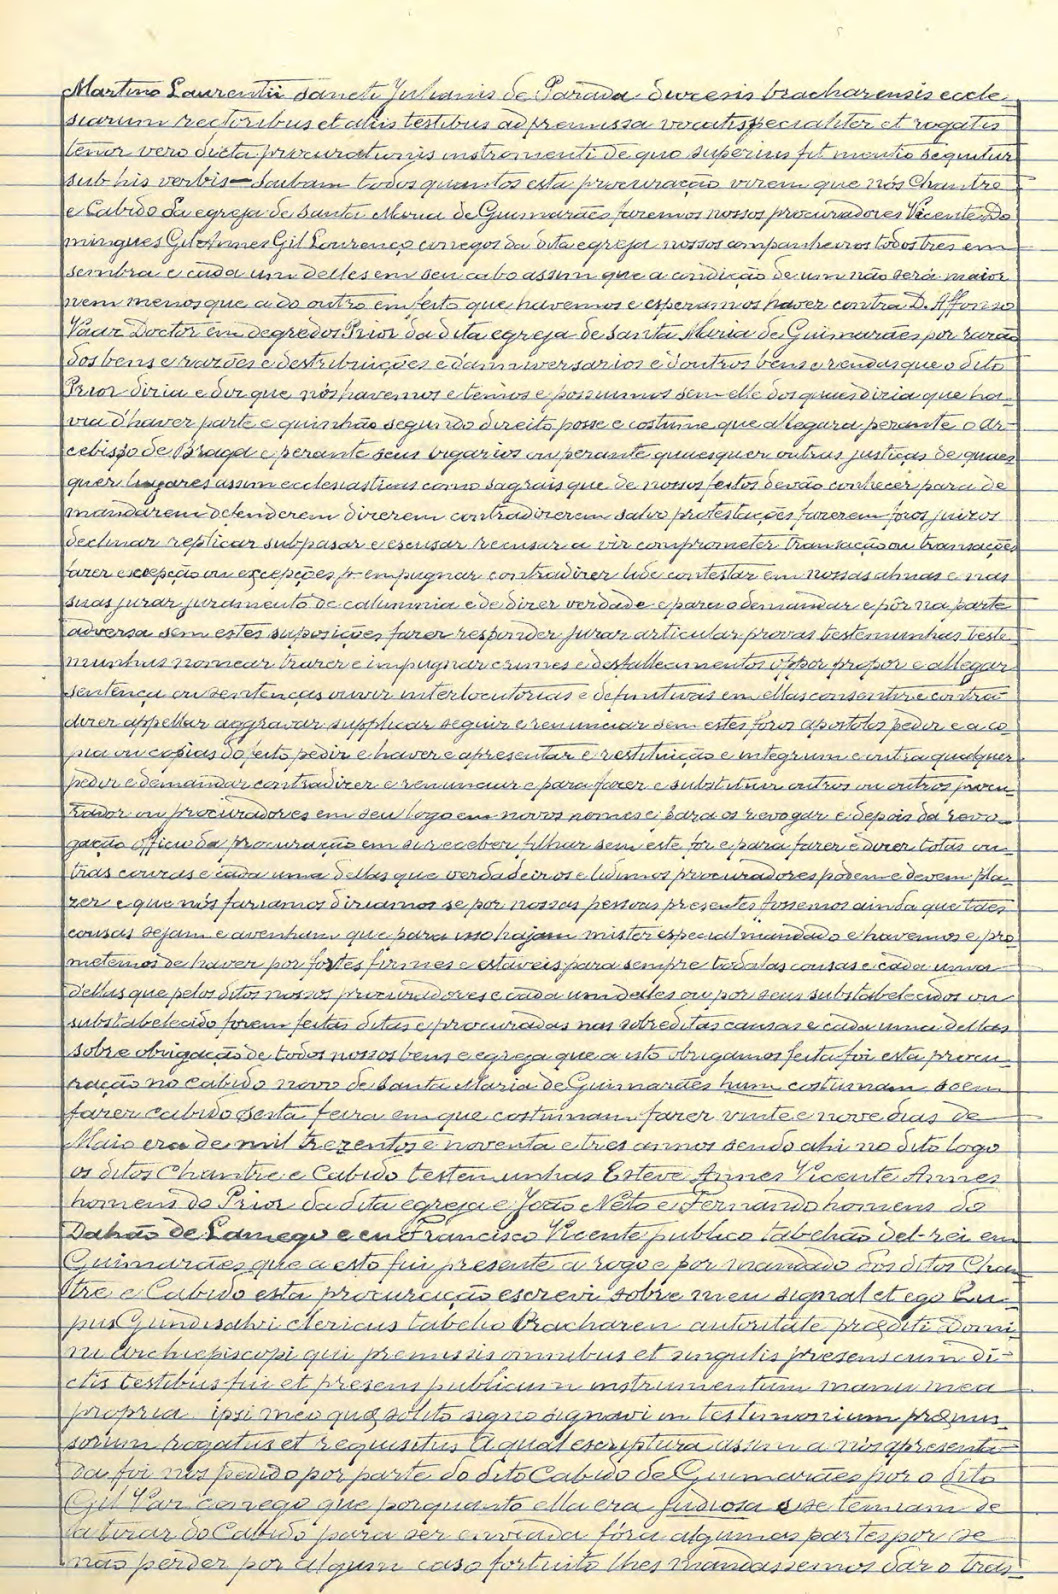 Martino Laurentii sancti Juliani de Parada diocesis bracharensis eccle
siarum rectoribus et aliis testibus ad premissa vocatis specialiter et rogatis
tenor vero dicta procurationis instromenti de quo superius fit mentio sequitur
sub his verbis — Saubam todos quantos esta procuração virem que nós Chantre
e Cabido da egreja de Santa Maria de Guimarães fazemos nossos procuradores Vicente Do
mingues Gil Annes Gil Lourenço conegos da dita egreja nossos companheiros todos tres em
sembra e cada um delles em seu cabo assim que a condição de um não será maior
nem menos que a do outro em feito que havemos e esperamos haver contra D. Affonso
Vaaz Doctor em degredos Prior da dita egreja de Santa Maria de Guimarães por razão
dos bens e razões e destribuições e d'anniversarios e d'outros bens e rendas que o dito
Prior dizia e diz que nós havemos e temos e possuimos sem elle dos quaes dizia que ha-
via d'haver parte e quinhão segundo direito posse e costume que allegara perante o Ar-
cebispo de Braga e perante seus vigarios ou perante quaesquer outras justiças de quaes
quer lugares assim ecclesiasticas como sagraes que de nossos feitos devão conhecer para de
mandarem defenderem dizerem contradizerem salvo protestações fazerem foros juizos
declinar replicar subpasar e escusar recusar a vir comprometer transação ou transações
fazer excepção ou excepções pr empugnar contradizer lide contestar em nossas almas e nas
suas jurar juramento de calumnia e de dizer verdade e para o demandar e pôr na parte
adversa sem estes suposições fazer responder jurar articular provas testemunhas teste
munhas nomear trazer e impugnar crimes e desfallecamentos oppor propor e allegar
sentença ou sentenças ouvir interlocutorias e definitivas em ellas consentir e contra
dizer appellar aggravar supplicar seguir e renunciar sem estes foros apostolos pedir e a co
pia ou copias do feito pedir e haver e apresentar e restituição e integrum e outra qualquer
pedir e demandar contradizer e renunciar e para fazer e substituir outros ou outros procu-
rador ou procuradores em seu logo em novos nomes e para os revogar e depois da revo-
gação officio da procuração em si receber filhar sem este for e para fazer e dizer totas ou-
tras couzas e cada uma dellas que verdadeiros e lidimos procuradores podem e devem pla-
zer e que nós fariamos diriamos se por nossas pessoas presentes fossemos ainda que taes
cousas sejam e avenham que para isso hajam mister especial mandado e havemos e pro
metemos de haver por fortes firmes e estaveis para sempre todalas cousas e cada uma
dellas que pelos ditos nossos procuradores e cada um delles ou por seus substabelecidos ou
substabelecido forem feitas ditas e procuradas nas sobreditas causas e cada uma dellas
sobre obrigação de todos nossos bens e egreja que a isto obrigamos feita foi esta procu-
ração no cabido novo de Santa Maria de Guimarães hum costumam soem
fazer cabido sexta feira em que costumam fazer vinte e nove dias de
Maio era de mil trezentos e noventa e tres annos sendo ahi no dito logo
os ditos Chantre e Cabido testemunhas Esteve Annes Vicente Annes
homens do Prior da dita egreja e João Neto e Fernando homens do
Dahão de Lamego e eu Francisco Vicente publico tabelião del-rei em
Guimarães que a esto fui presente a rogo e por mandado dos ditos Chan
tre e Cabido esta procuração escrevi sobre meu signal et ego Lu-
pus Gundisalvi clericus tabelio Bracharen autoritate præditi Domi-
ni archiepiscopi qui premissis omnibus et singulis presens cum di-
ctis testibus fui et presens publicum instrumentum manu mea
propria ipsi meo que solito signo signavi in testimonium præmis-
sorum rogatus et requisitus A qual escriptura assim a nós apresenta
da foi nos pedido por parte do dito Cabido de Guimarães por o dito
Gil Vaz conego que porquanto ella era judiosa e se temiam de
la tirar do Cabido para ser enviada fóra algumas partes por se
não perder por algum caso fortuito lhes mandassemos dar o tras-